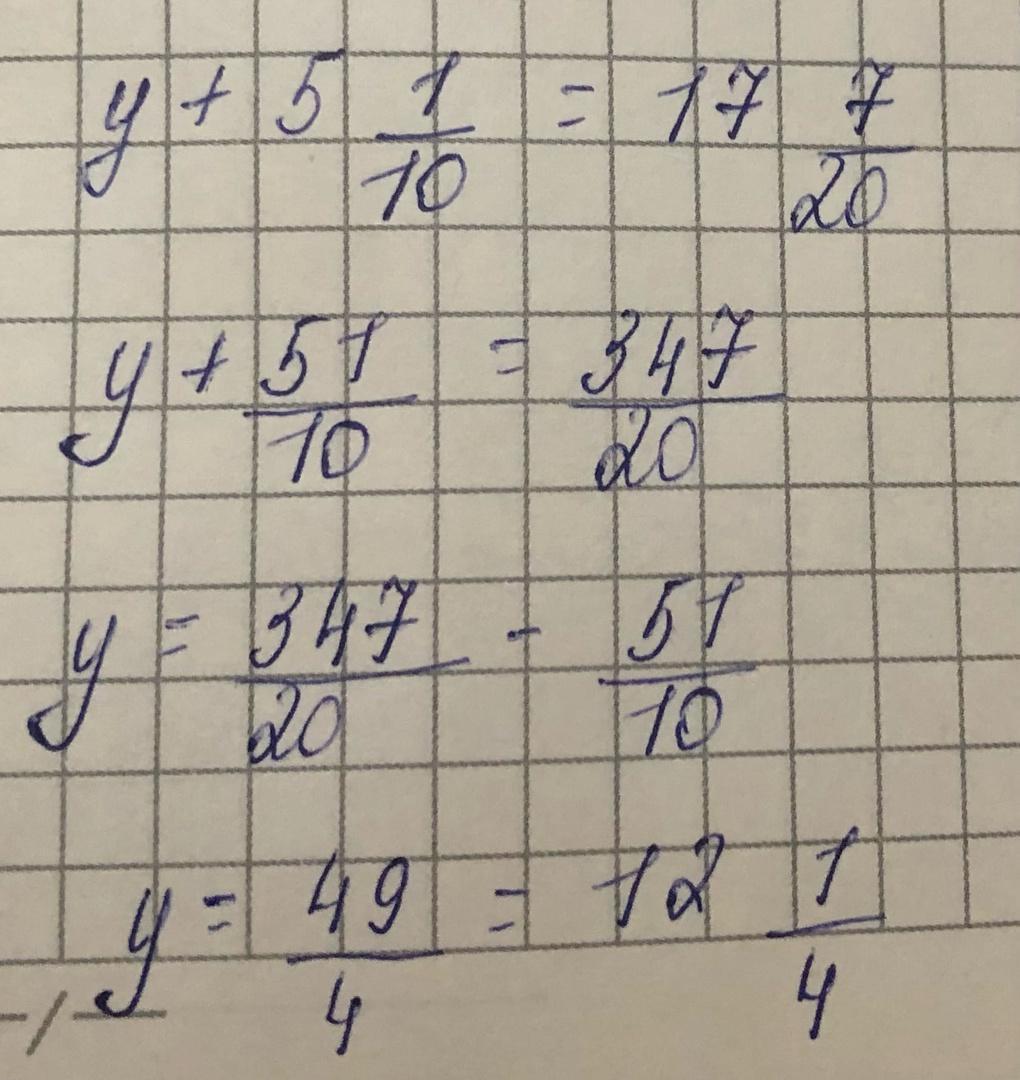 y + 5 1/10 = 17 7/20
y + 51/10 = 347/20
y = 347/20 - 51/10
y = 49/4 = 12 1/4